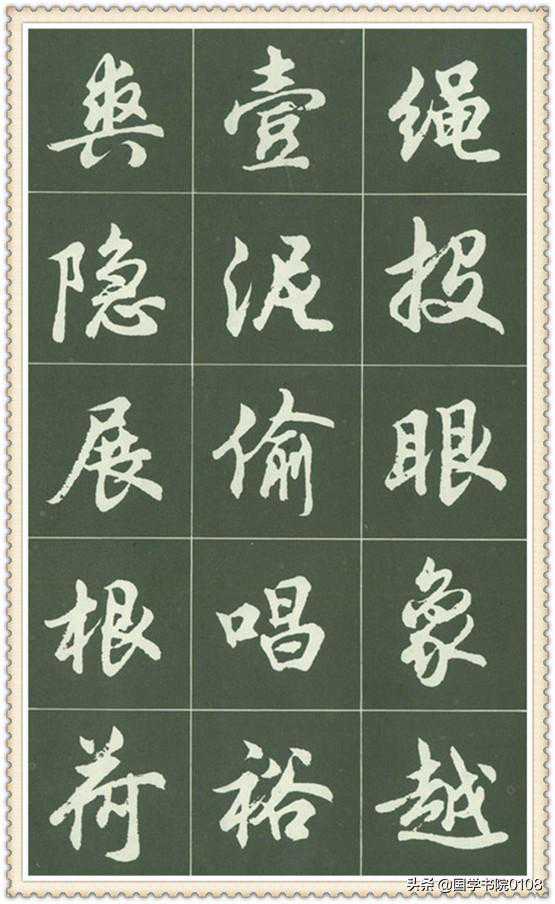 绳投眼象越
壹泥偷唱裕
隐展根荷
头条 @国学书院0108